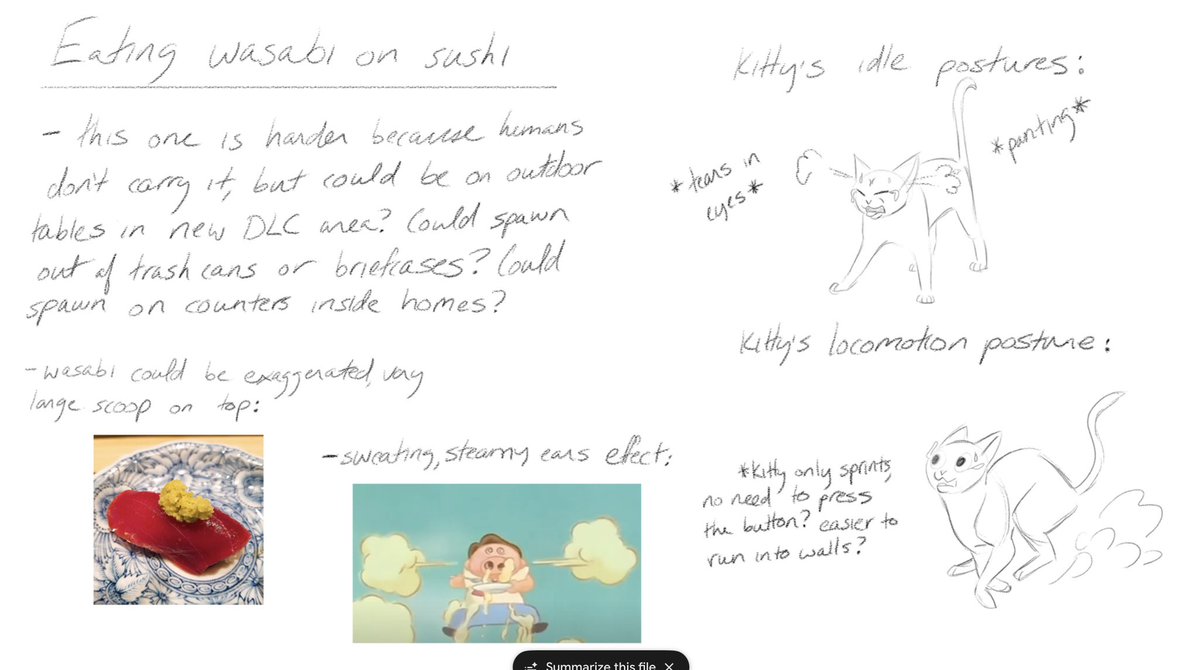 Eating wasabi on sushi
- this one is harder because humans
don't carry it, but could be on outdoor
tables in new DLC area? Could spawn
out of trash cans or briefcases? Could
spawn on counters inside homes?
- wasabi could be exaggerated, very
large scoop on top:
- sweating, steamy ears effect:
Kitty's idle postures:
*tears in
eyes*
*panting*
Kitty's locomotion posture:
*Kitty only sprints,
no need to press
the button? easier to
run into walls?
Summarize this file